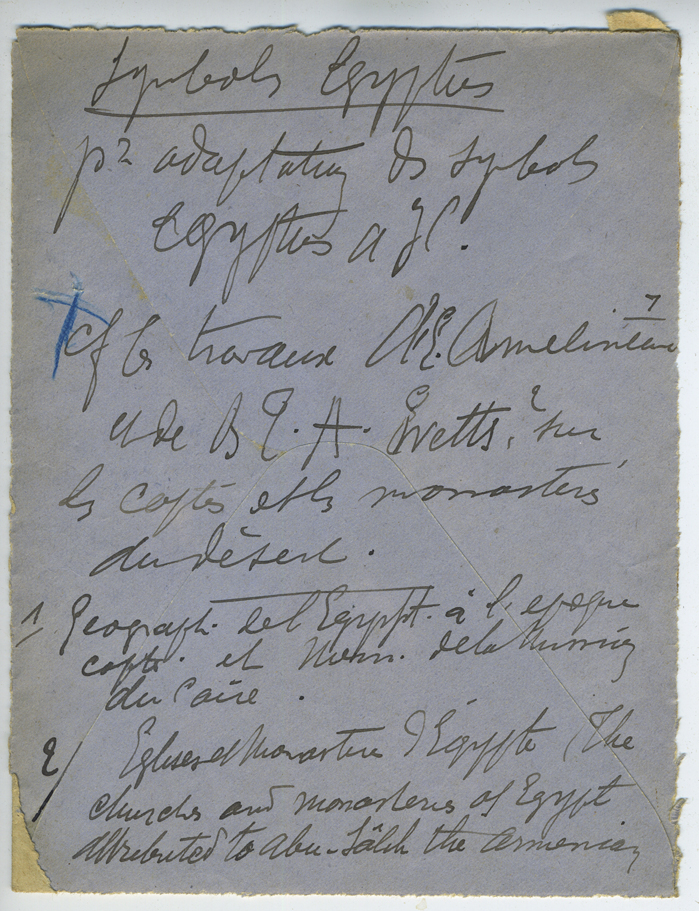 Symbols Egyptes
pr adaptation ds symbols
Egyptes a JC.
cf ls travaux d'E. Amelineau 1
et de B T. A. Evetts, 2 sur
ls coptes et ls monastères
du désert.
1 Geograph. de l'Egypt. à l'epoque
copte. et Mem. de la Mission
du Caire.
2/ Eglises et Monastères d'Égypte (The
churches and monasteries of Egypt
attributed to abu-Sâlih the armenian